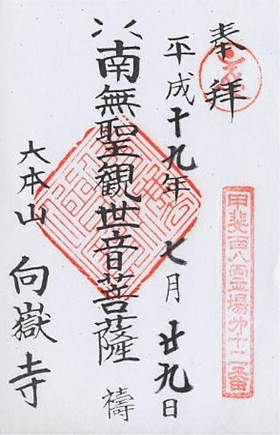 奉拝
甲斐百八霊場第十二番
平成十九年七月廿九日
南無聖観世音菩薩
禱
大本山
向嶽寺